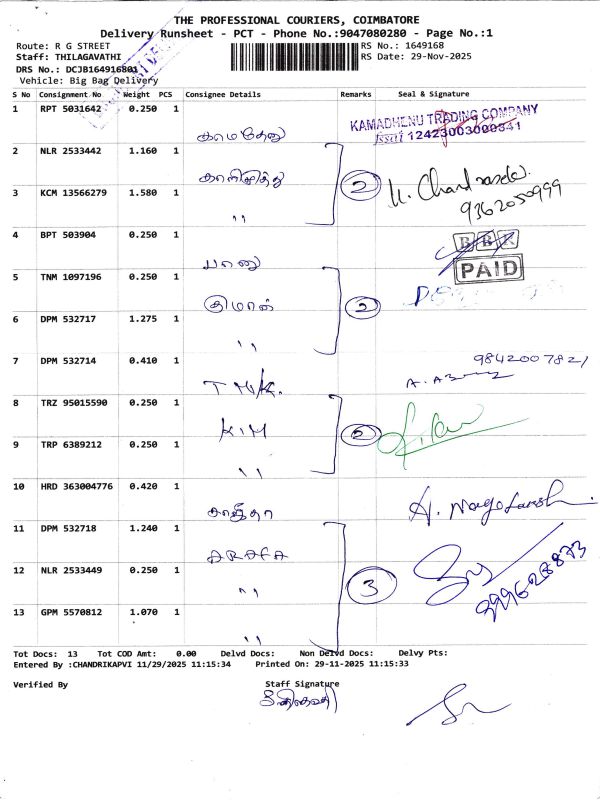 THE PROFESSIONAL COURIERS, COIMBATORE
Delivery Runsheet - PCT - Phone No.:9047080280 - Page No.:1
Route: R G STREET
Staff: THILAGAVATHI
DRS No.: DCJB164916801
Vehicle: Big Bag Delivery
RS No.: 1649168
RS Date: 29-Nov-2025
S No Consignment No Weight PCS Consignee Details Remarks Seal & Signature
1 RPT 5031642 0.250 1 காமதேனு KAMADHENU TRADING COMPANY
fssai 12423003000341
2 NLR 2533442 1.160 1
3 KCM 13566279 1.580 1 ,, 2 9362050999
4 BPT 503904 0.250 1 BBK
PAID
5 TNM 1097196 0.250 1
6 DPM 532717 1.275 1 ,, 2
7 DPM 532714 0.410 1 9842007821
8 TRZ 95015590 0.250 1 KIM
9 TRP 6389212 0.250 1 ,, 2
10 HRD 363004776 0.420 1
11 DPM 532718 1.240 1 ARAFA
12 NLR 2533449 0.250 1 ,, 3
13 GPM 5570812 1.070 1 ,,
Tot Docs: 13 Tot COD Amt: 0.00 Delvd Docs: Non Delvd Docs: Delvy Pts:
Entered By :CHANDRIKAPVI 11/29/2025 11:15:34 Printed On: 29-11-2025 11:15:33
Verified By Staff Signature